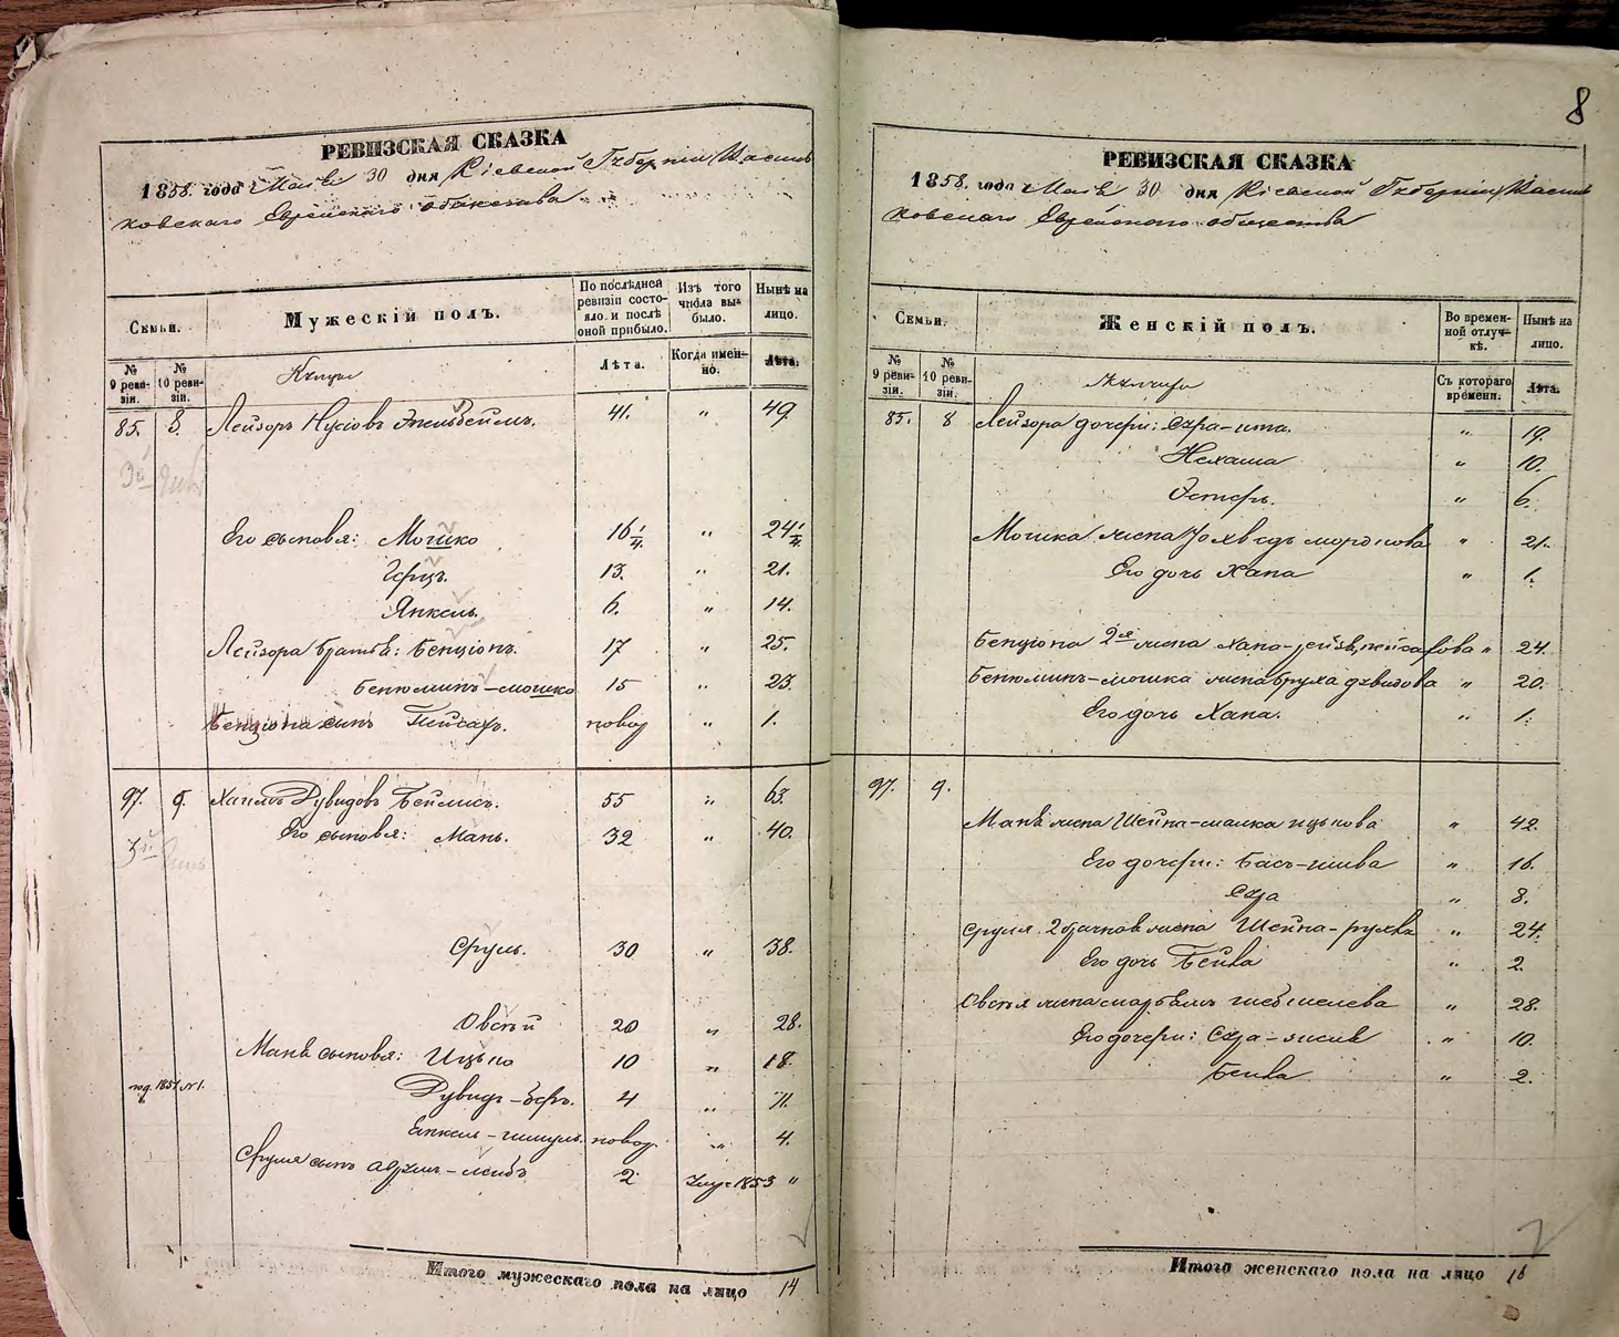 8
РЕВИЗСКАЯ СКАЗКА
1858. года Маія 30 дня Кіевской Губерніи Василь
ковскаго Еврейскаго общества
Семьи.
Мужескій полъ.
По послѣдней ревизіи состояло и послѣ оной прибыло.
Изъ того числа выбыло.
Нынѣ на лицо.
№ 9 ревизіи.
№ 10 ревизіи.
Купцы
Лѣта.
Когда именно.
Лѣта.
85. 8. Лейзоръ Нусіовъ 41. „ 49.
Его сыновья: Мошко 16¼ „ 24¼
Герцъ. 13. „ 21.
Янкель. 6. „ 14.
Лейзора братья: Бенціонъ. 17 „ 25.
Бенюминъ-мошко 15 „ 23.
Бенціона сынъ Пейсахъ. новор „ 1.
97. 9. Хаимъ Дувидовъ Бейлисъ. 55 „ 63.
Его сыновья: Мань. 32 „ 40.
Сруль. 30 „ 38.
Овсѣй 20 „ 28.
Маня сыновья: Ицько 10 „ 18.
Дувидъ-Беръ. 4 „ 11.
новор. „ 4.
Сруля сынъ 2 1853 „
Итого мужескаго пола на лицо 14
РЕВИЗСКАЯ СКАЗКА
1858. года Маія 30 дня Кіевской Губерніи Василь
ковскаго Еврейскаго общества
Семьи.
Женскій полъ.
Во временной отлучкѣ.
Нынѣ на лицо.
№ 9 ревизіи.
№ 10 ревизіи.
Съ котораго времени.
Лѣта.
85. 8 Лейзора дочери: Сура-ита. „ 19.
Нехама „ 10.
Эстеръ. „ 6.
Мошка жена Іохведъ „ 21.
Его дочь Хана „ 1.
Бенціона 2я жена Хана- „ 24.
Бенюминъ-мошка жена Бруха Дувидова „ 20.
Его дочь Хана. „ 1.
97. 9.
Маня жена Шейна-малка ицькова „ 42.
Его дочери: Бась-шива „ 16.
Сура „ 8.
Сруля 2 брачнов жена Шейна-рухля „ 24.
Его дочь Бейла „ 2.
Овсѣя жена „ 28.
Его дочери: Сура- „ 10.
Бейла „ 2.
Итого женскаго пола на лицо 16